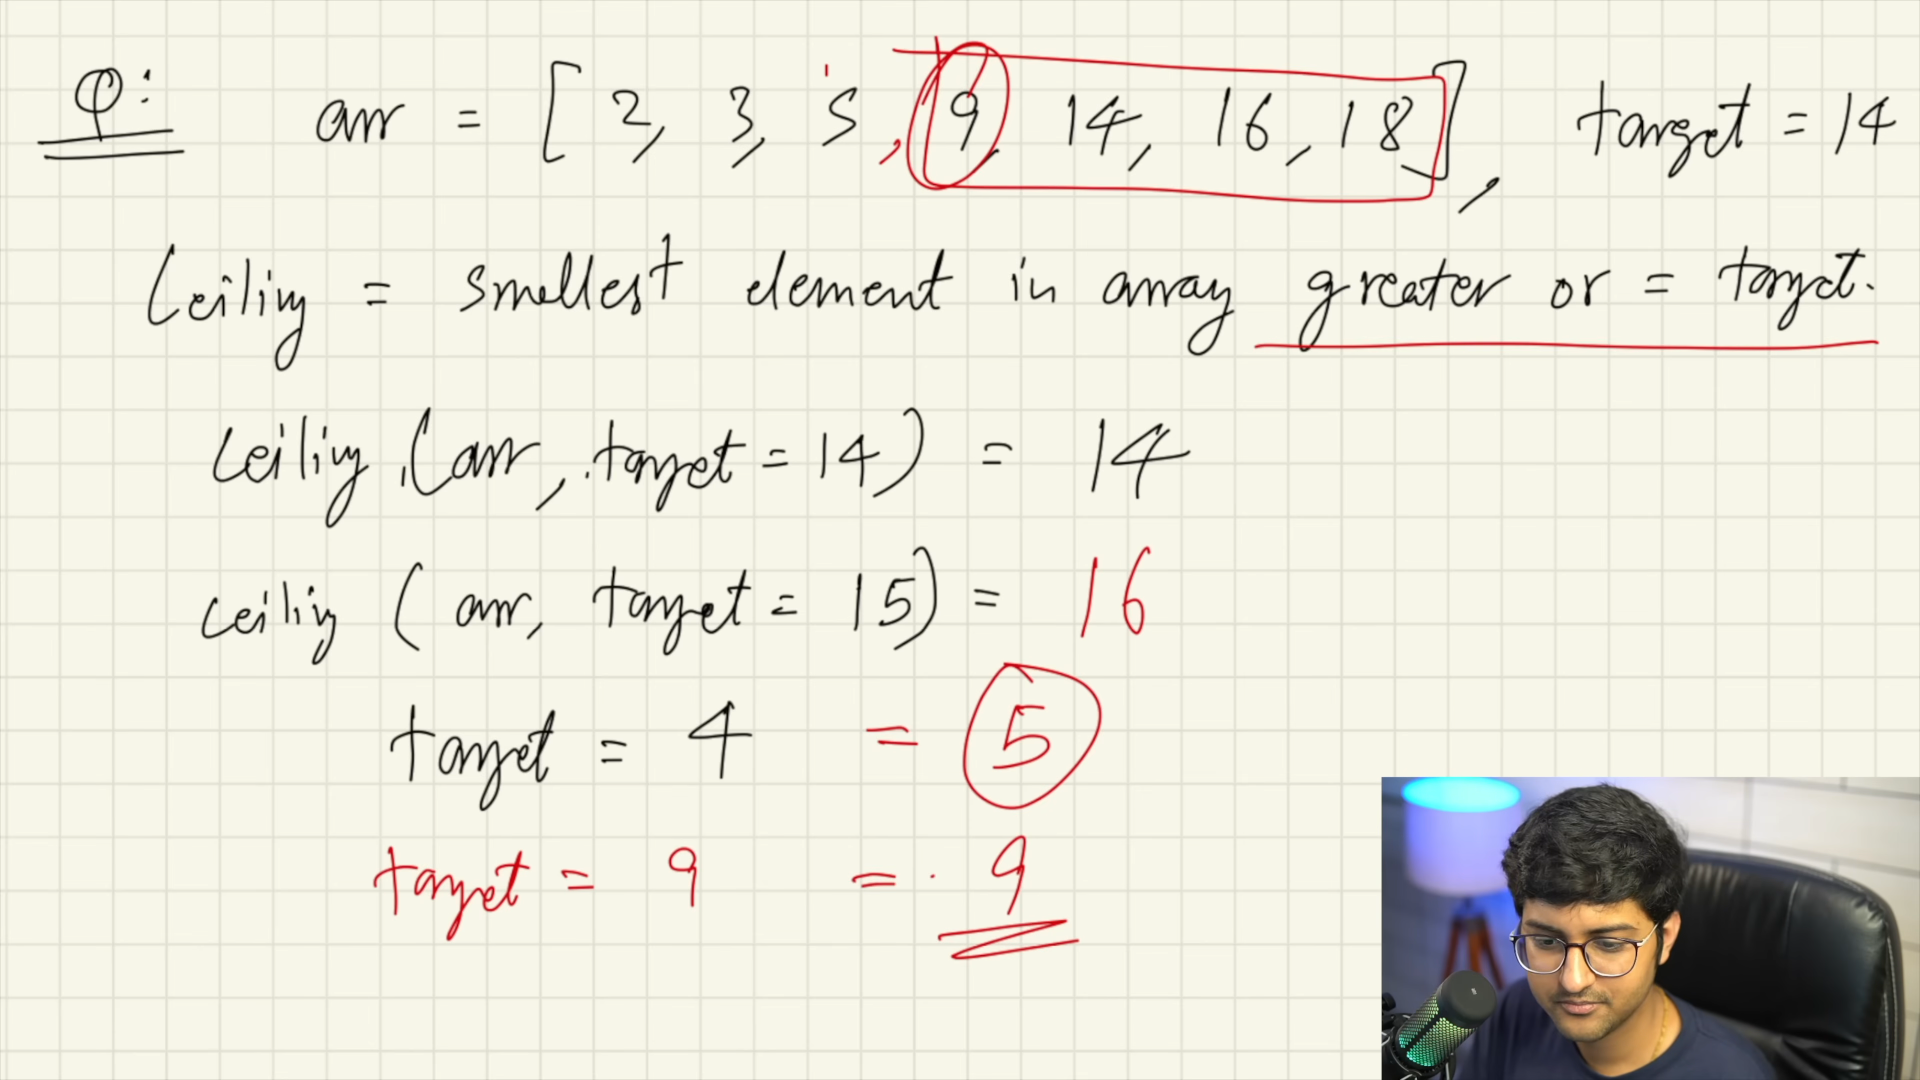 Q: arr = [ 2, 3, 5, 9, 14, 16, 18 ], target = 14
Ceiling = smallest element in array greater or = target.
Ceiling (arr, target = 14) = 14
ceiling (arr, target = 15) = 16
target = 4 = 5
target = 9 = 9